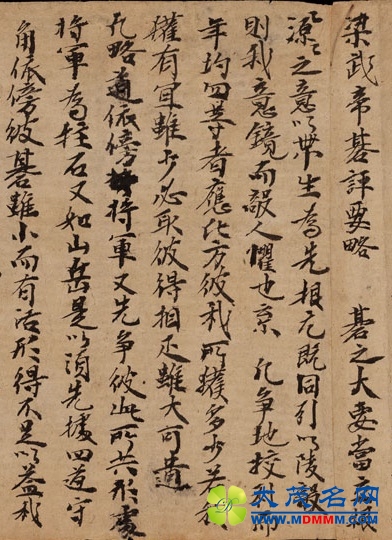 梁武帝碁評要略 碁之大要當立根
源々之意以帶生為先根元既同引以陵敵
則我意鏡而敵人懼也 凡爭地校利
年均四等者應比方彼我所獲多少若我
獲有冝雖少必取彼得相疋雖大可遺
凡略道依傍將軍又先爭彼此所共形處
將軍為柱石又如山岳是以須先據四道守
角依傍彼碁雖小而有活形得不足以益我
大茂名网
WWW.MDMMM.COM